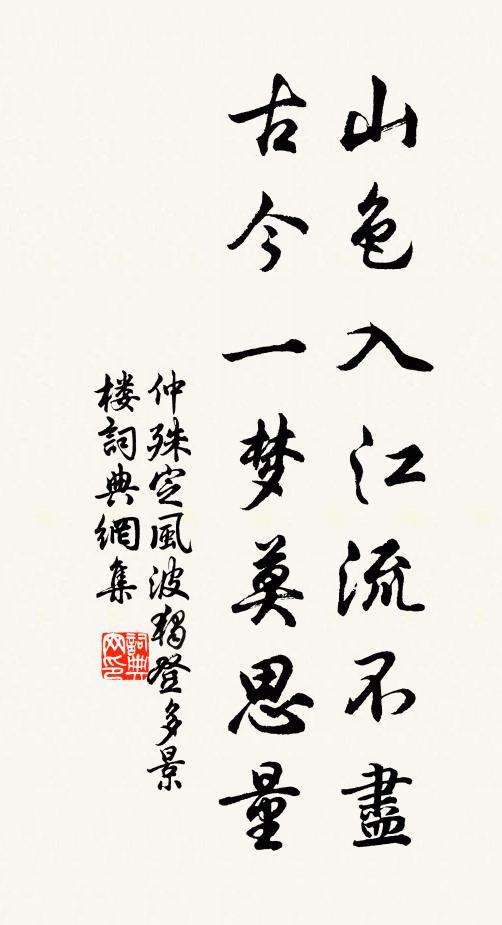 山色入江流不盡
古今一梦莫思量
仲殊定風波獨登多景
楼詞典網集
詞典网印